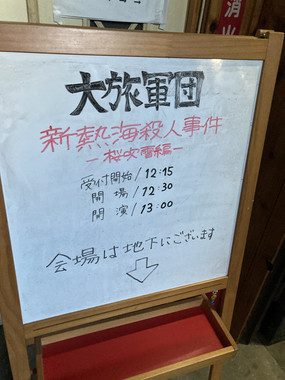 大旅軍団
新熱海殺人事件
ー桜吹雪編ー
受付開始/12:15
開場/12:30
開演/13:00
会場は地下にございます
消火